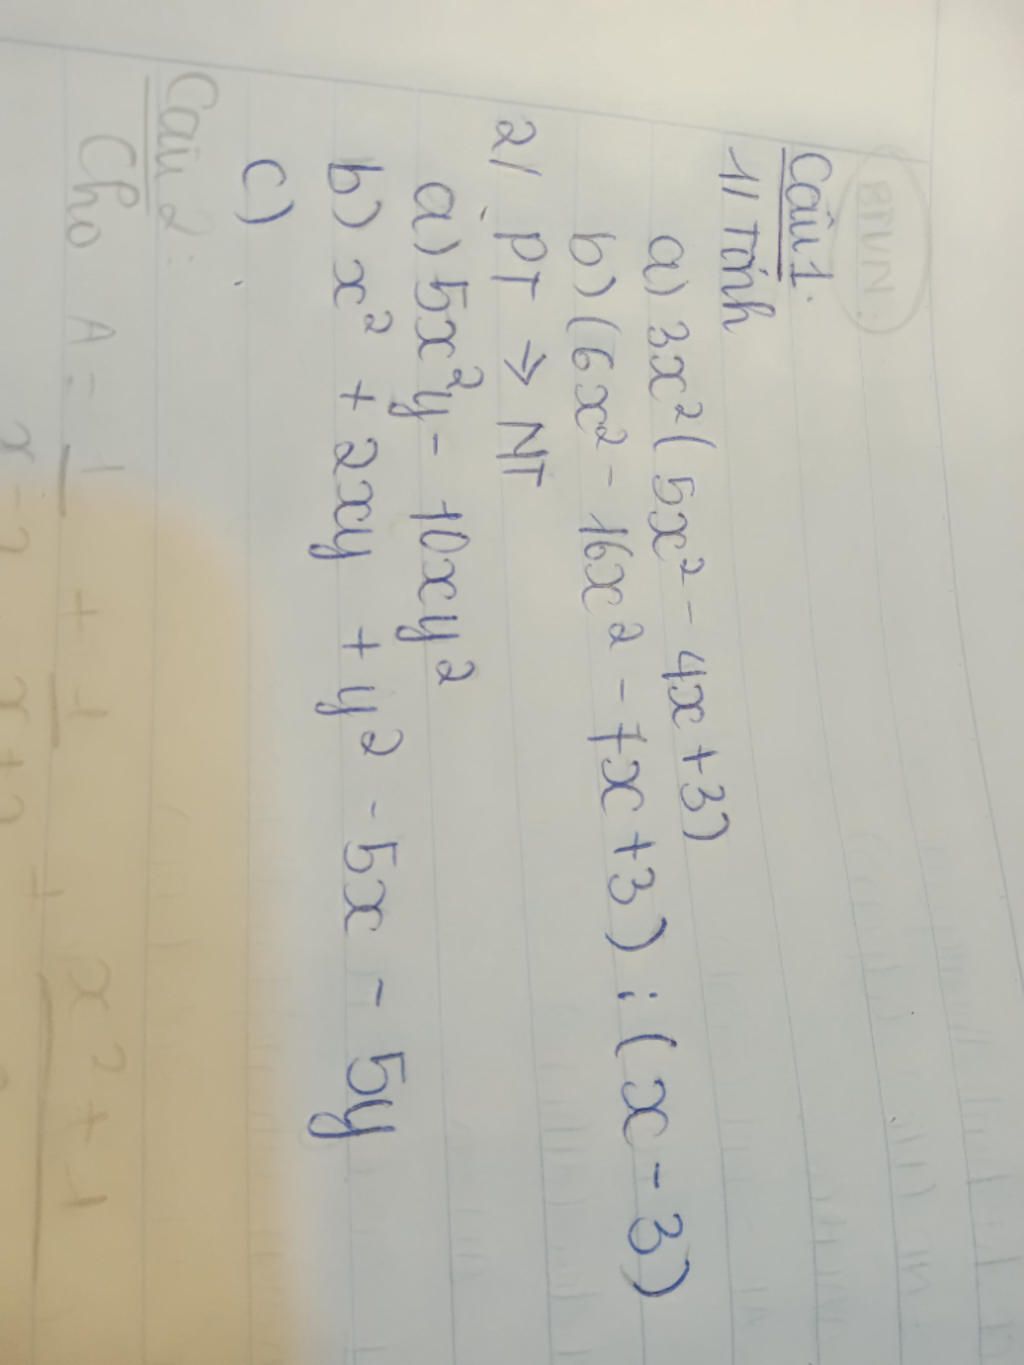 BTVN.
Câu 1.
1/ Tính
a) 3x² (5x² - 4x + 3)
b) (6x² - 16x² - 7x + 3) : (x - 3)
2/ PT → NT
a) 5x²y - 10xy²
b) x² + 2xy + y² - 5x - 5y
c)
Câu 2:
Cho A = 1 + 1 + x² + 1
x - 2 x + 2